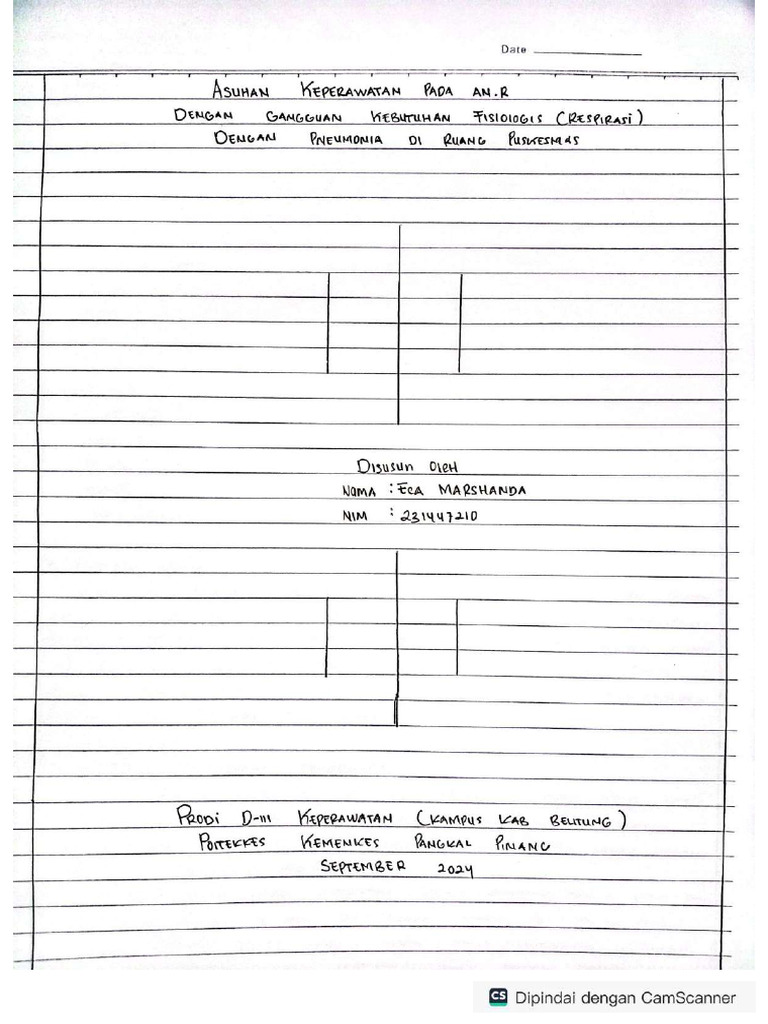 Date
ASUHAN KEPERAWATAN PADA AN.R
DENGAN GANGGUAN KEBUTUHAN FISIOLOGIS (RESPIRASI)
DENGAN PNEUMONIA DI RUANG PUSKESMAS
Disusun OleH
NAMA : ECA MARSHANDA
NIM : 231447210
PRODI D-III KEPERAWATAN (KAMPUS KAB BELITUNG)
POLTEKKES KEMENKES PANGKAL PINANG
SEPTEMBER 2024
CS Dipindai dengan CamScanner